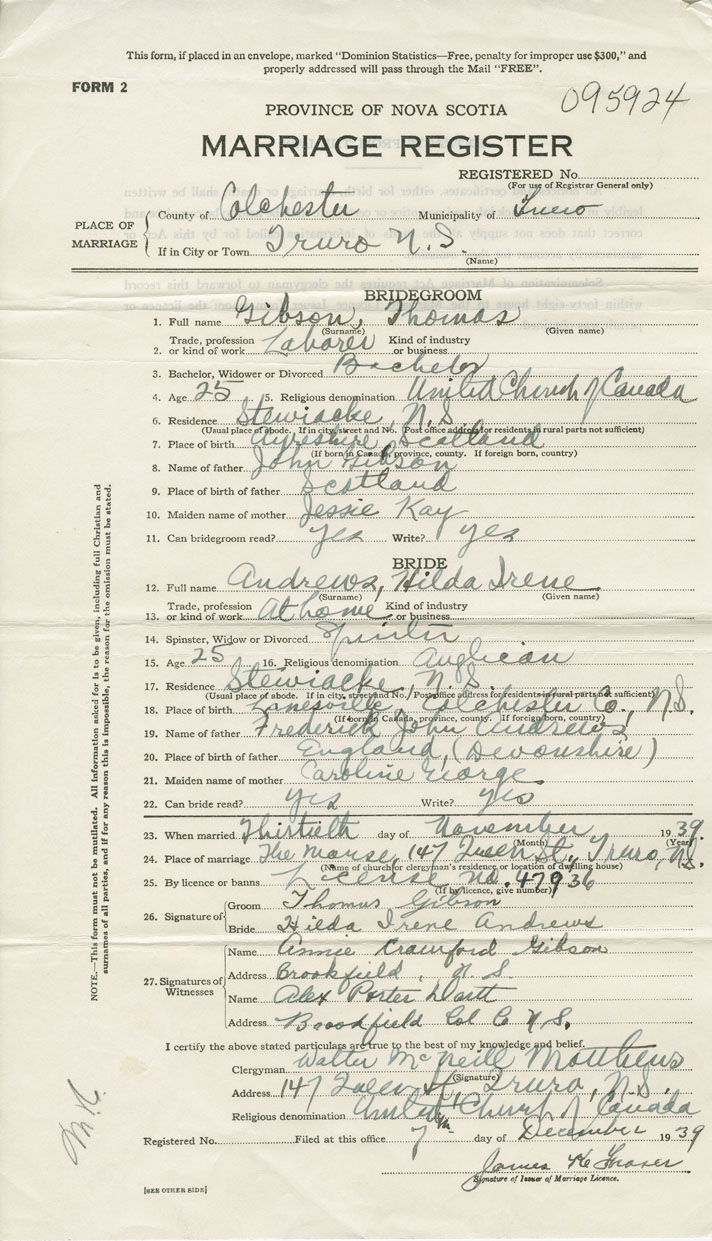 This form, if placed in an envelope, marked "Dominion Statistics—Free, penalty for improper use $300," and
properly addressed will pass through the Mail "FREE".
FORM 2
095924
PROVINCE OF NOVA SCOTIA
MARRIAGE REGISTER
REGISTERED No.
(For use of Registrar General only)
PLACE OF MARRIAGE
County of Colchester Municipality of Truro
If in City or Town Truro N.S.
(Name)
BRIDEGROOM
1. Full name Gibson, Thomas
(Surname) (Given name)
2. Trade, profession or kind of work Laborer Kind of industry or business
3. Bachelor, Widower or Divorced Bachelor
4. Age 25 5. Religious denomination United Church of Canada
6. Residence Stewiacke, N.S.
(Usual place of abode. If in city, street and No. Post office address for residents in rural parts not sufficient)
7. Place of birth Ayrshire, Scotland
(If born in Canada, province, county. If foreign born, country)
8. Name of father John Gibson
9. Place of birth of father Scotland
10. Maiden name of mother Jessie Kay
11. Can bridegroom read? yes Write? yes
BRIDE
12. Full name Andrews, Hilda Irene
(Surname) (Given name)
13. Trade, profession or kind of work At home Kind of industry or business
14. Spinster, Widow or Divorced Spinster
15. Age 25 16. Religious denomination Anglican
17. Residence Stewiacke, N.S.
(Usual place of abode. If in city, street and No. Post office address for residents in rural parts not sufficient)
18. Place of birth Colchester Co., N.S.
(If born in Canada, province, county. If foreign born, country)
19. Name of father Frederick John Andrews
20. Place of birth of father England, (Devonshire)
21. Maiden name of mother Caroline George
22. Can bride read? yes Write? yes
23. When married Thirtieth day of November 1939.
(Month) (Year)
24. Place of marriage The Manse, 147 Queen St., Truro, N.S.
(Name of church or clergyman's residence or location of dwelling house)
25. By licence or banns License no. 47936
(If by licence, give number)
26. Signature of
Groom Thomas Gibson
Bride Hilda Irene Andrews
27. Signatures of Witnesses
Name Annie Crawford Gibson
Address Brookfield, N.S.
Name Alex Porter
Address Brookfield Col Co N.S.
I certify the above stated particulars are true to the best of my knowledge and belief.
Clergyman Walter McNeill Matthews
(Signature)
Address 147 Queen St, Truro, N.S.
Religious denomination United Church of Canada
Registered No. Filed at this office 7th day of December 1939
James Fraser
Signature of Issuer of Marriage Licence.
[SEE OTHER SIDE]
NOTE.—This form must not be mutilated. All information asked for is to be given, including full Christian and
surnames of all parties, and if for any reason this is impossible, the reason for the omission must be stated.